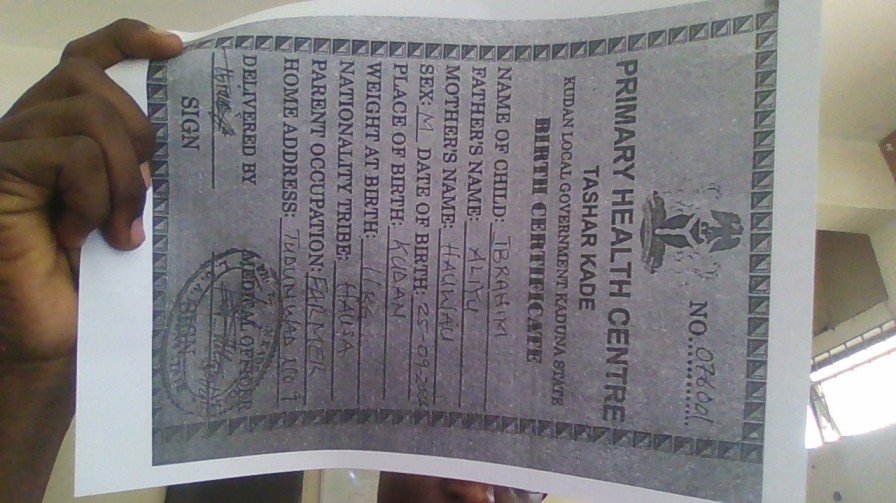 NO. 076001
PRIMARY HEALTH CENTRE
TASHAR KADE
KUDAN LOCAL GOVERNMENT KADUNA STATE
BIRTH CERTIFICATE
NAME OF CHILD: IBRAHIM
FATHER'S NAME: ALIYU
MOTHER'S NAME: HAUWAU
SEX: M DATE OF BIRTH: 25-09-
PLACE OF BIRTH: KUDAN
WEIGHT AT BIRTH:
NATIONALITY TRIBE: HAUSA
PARENT OCCUPATION: FARMER
HOME ADDRESS: TUDUN WADA NO
DELIVERED BY MEDICAL OFFICER
SIGN SIGN